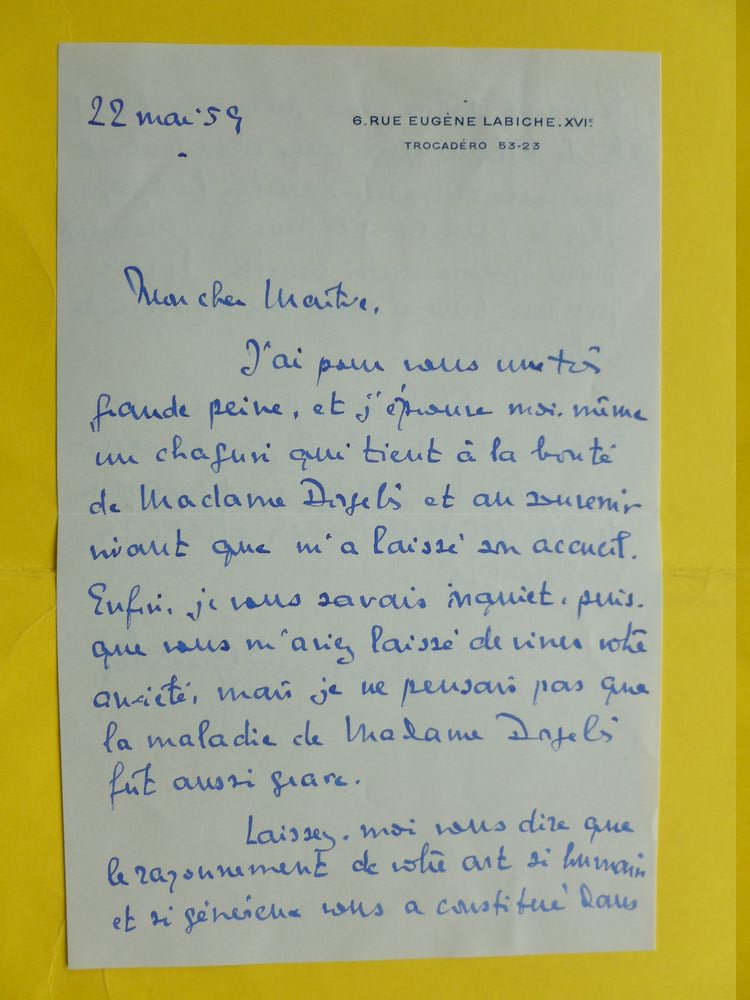 22 mai 59
6. RUE EUGÈNE LABICHE. XVIE
TROCADÉRO 53-23
Mon cher Maître,
J'ai pour vous une très
grande peine, et j'éprouve moi-même
un chagrin qui tient à la bonté
de Madame Dorgelès et au souvenir
vivant que m'a laissé son accueil.
Enfin, je vous savais inquiet, puis-
que vous m'aviez laissé deviner votre
anxiété, mais je ne pensais pas que
la maladie de Madame Dorgelès
fût aussi grave.
Laissez-moi vous dire que
le rayonnement de votre art si humain
et si généreux vous a constitué dans